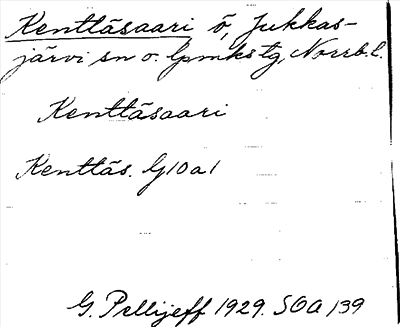 Kenttäsaari ö, Jukkas-
järvi sn o. lpmkstg, Norrb. l.
Kenttäsaari
Kenttäs. G10a1
G. Pellijeff 1929. SOA 139